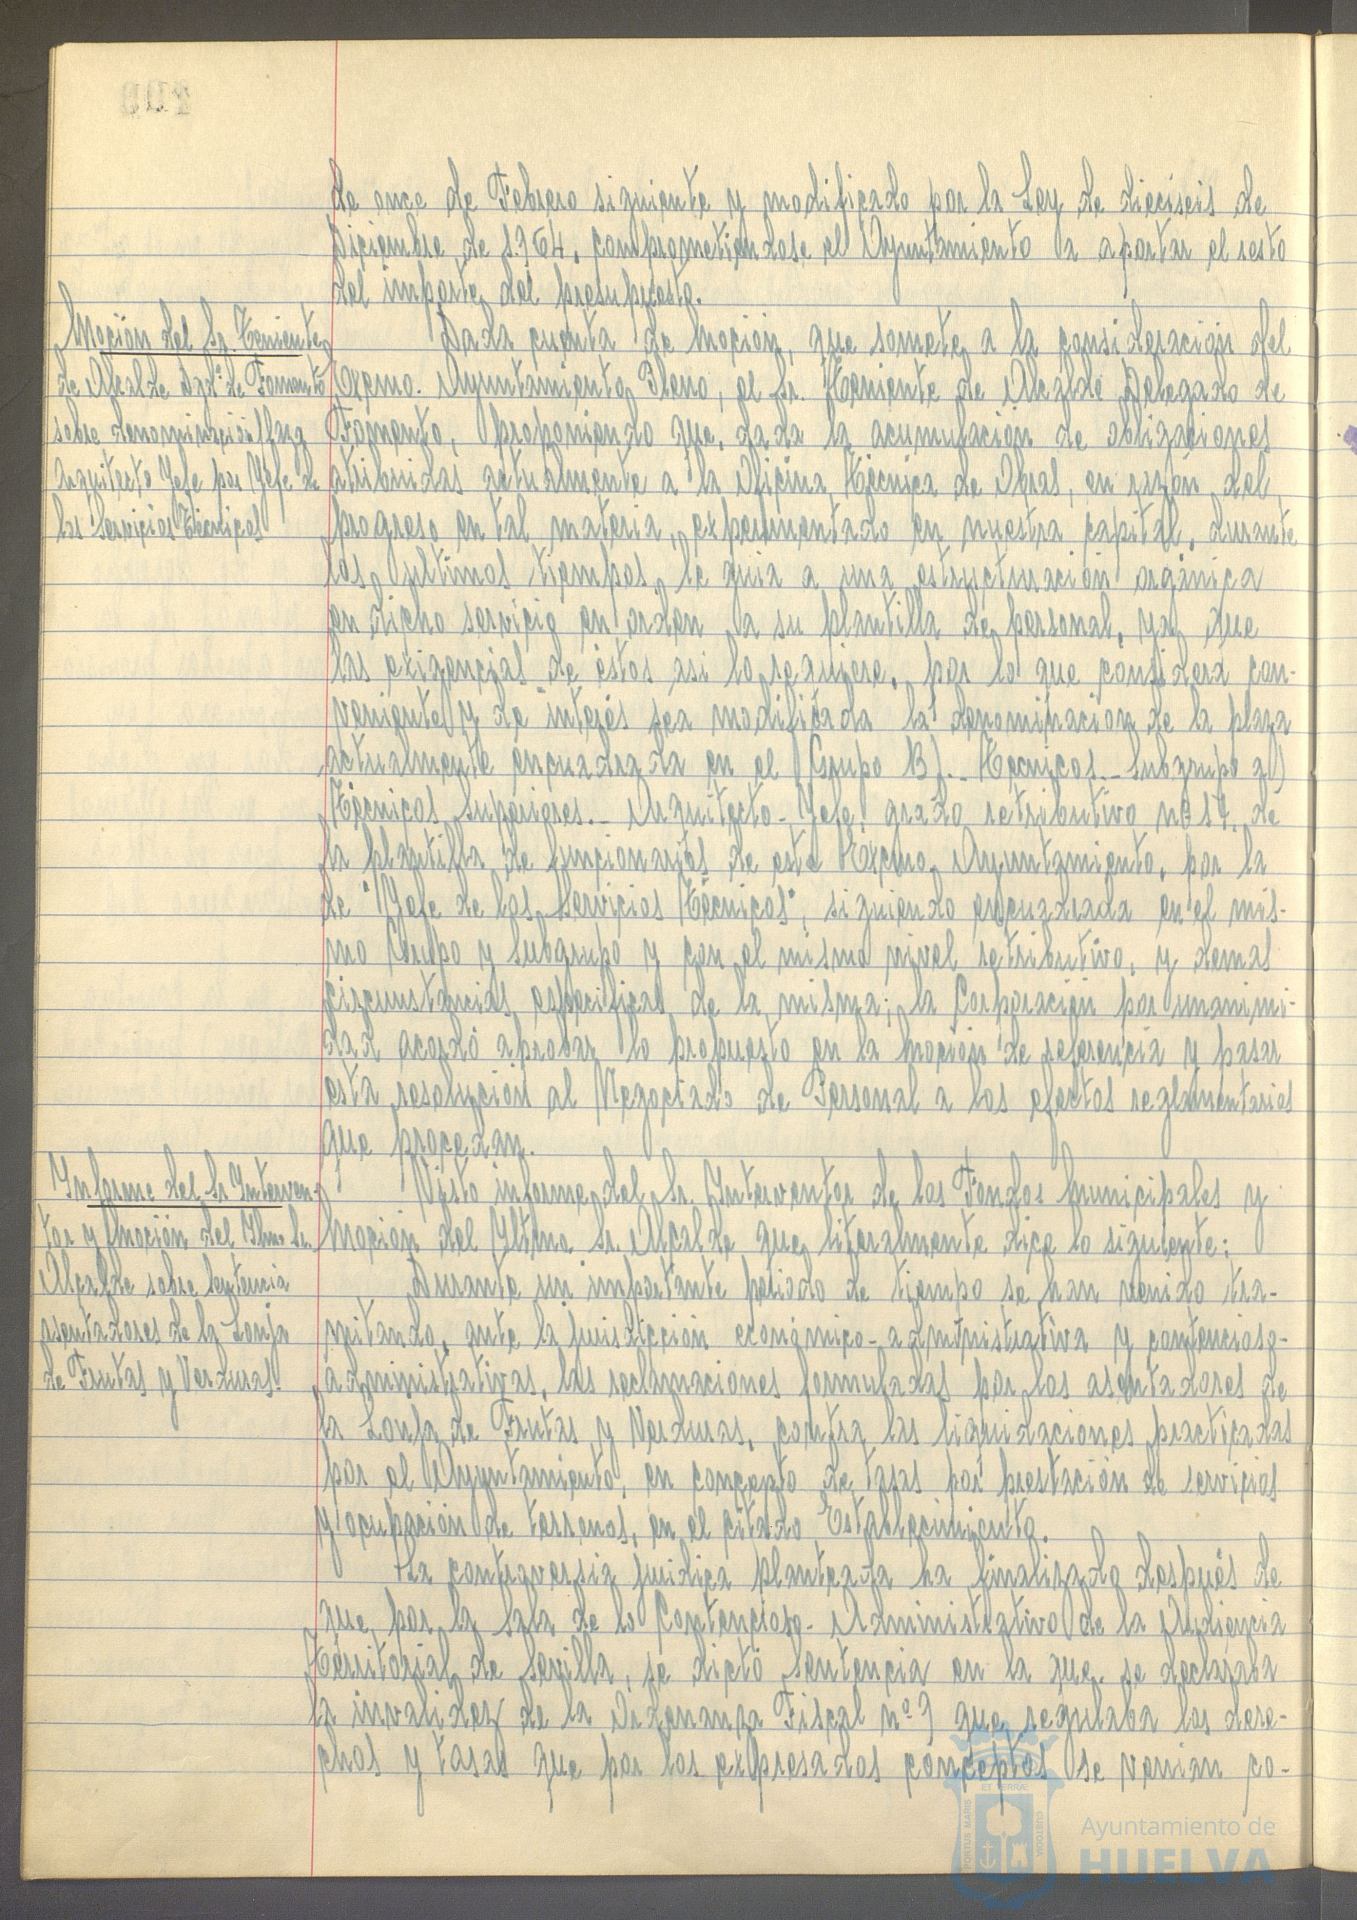 de once de Febrero siguiente y modificado por la Ley de dieciseis de
Diciembre de 1.964, comprometiendose el Ayuntamiento a aportar el resto
del importe del presupuesto.
Moción del Sr. Teniente
de Alcalde de Fomento
sobre denominación plaza
Arquitecto Jefe por Jefe de
los Servicios Técnicos
Dada cuenta de Moción, que somete a la consideración del
Excmo. Ayuntamiento Pleno, el Sr. Teniente de Alcalde Delegado de
Fomento, proponiendo que, dada la acumulación de obligaciones
atribuidas actualmente a la Oficina Técnica de Obras, en razón del
progreso en tal materia, experimentado en nuestra capital, durante
los ultimos tiempos, se guia a una estructuración orgánica
en dicho servicio en orden a su plantilla de personal, ya que
las exigencias de éstos asi lo requiere, por lo que considera con-
veniente y de interés sea modificada la denominacion de la plaza
actualmente encuadrada en el Grupo B).- Técnicos.- Subgrupo a)
Técnicos Superiores.- Arquitecto-Jefe, grado retributivo nº 17, de
la plantilla de funcionarios de este Excmo. Ayuntamiento, por la
de "Jefe de los Servicios Técnicos", siguiendo encuadrada en el mis-
mo Grupo y Subgrupo y con el mismo nivel retributivo, y demas
circunstancias especificas de la misma; la Corporación por unanimi-
dad acordó aprobar lo propuesto en la moción de referencia y pasar
esta resolución al Negociado de Personal a los efectos reglamentarios
que procedan.
Informe del Sr Interven-
tor y Moción del Iltmo Sr.
Alcalde sobre Sentencia
asentadores de la Lonja
de Frutas y Verduras.
Visto informe del Sr. Interventor de los Fondos Municipales y
Moción del Iltmo Sr. Alcalde que literalmente dice lo siguiente:
Durante un importante periodo de tiempo se han venido tra-
mitando, ante la jurisdicción económico-administrativa y contencioso-
administrativas, las reclamaciones formuladas por los asentadores de
la Lonja de Frutas y Verduras, contra las liquidaciones practicadas
por el Ayuntamiento, en concepto de tasas por prestación de servicios
y ocupación de terrenos, en el citado Establecimiento.
La controversia juridica planteada ha finalizado después de
que por la Sala de lo Contencioso-Administrativo de la Audiencia
Territorial de Sevilla, se dictó Sentencia en la que se declaraba
la invalidez de la Ordenanza Fiscal nº 9 que regulaba los dere-
chos y tasas que por los expresados conceptos se venian co-
PORTUS MARIS
ET TERRÆ
CUSTODIA
Ayuntamiento de
HUELVA